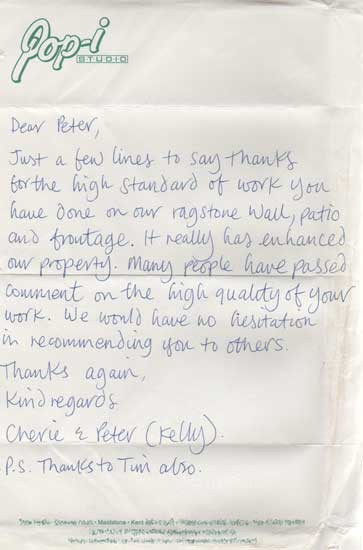 Pop-i
STUDIO
Dear Peter,
Just a few lines to say thanks
for the high standard of work you
have done on our ragstone wall, patio
and frontage. It really has enhanced
our property. Many people have passed
comment on the high quality of your
work. We would have no hesitation
in recommending you to others.
Thanks again,
Kind regards
Cherie & Peter (Kelly).
P.S. Thanks to Tim also.
Maidstone • Kent